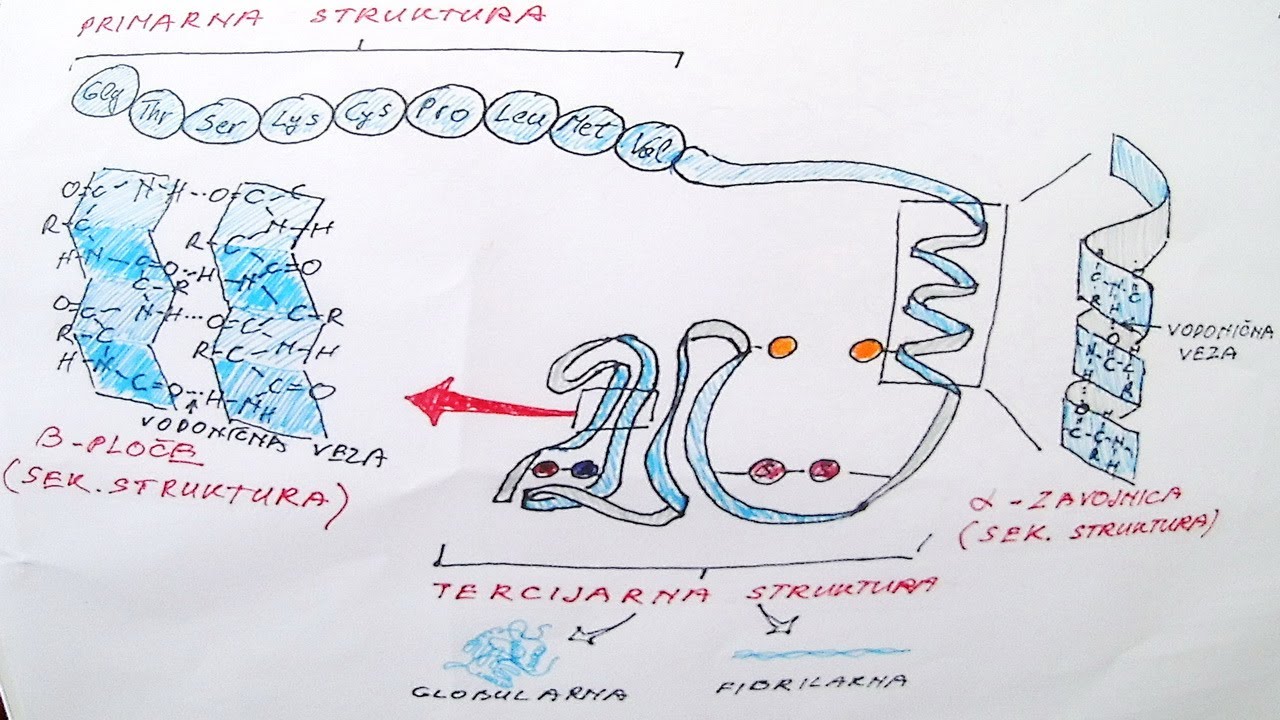 PRIMARNA STRUKTURA
Gly Thr Ser Lys Cys Pro Leu Met Val
O=C N-H...O=C C
R-C N-H
R-C
H-N C=O...H-N C=O
C-R C-R
O=C N-H...O=C
R-C R-C N-H
H-N C=O...H-NH C=O
VODONIČNA VEZA
β-PLOČE
(SEK. STRUKTURA)
S S
C-N C
R H
O H
VODONIČNA
VEZA
N-C-C
H R
O H
C-C-N
R H
α-ZAVOJNICA
(SEK. STRUKTURA)
TERCIJARNA STRUKTURA
GLOBULARNA
FIBRILARNA